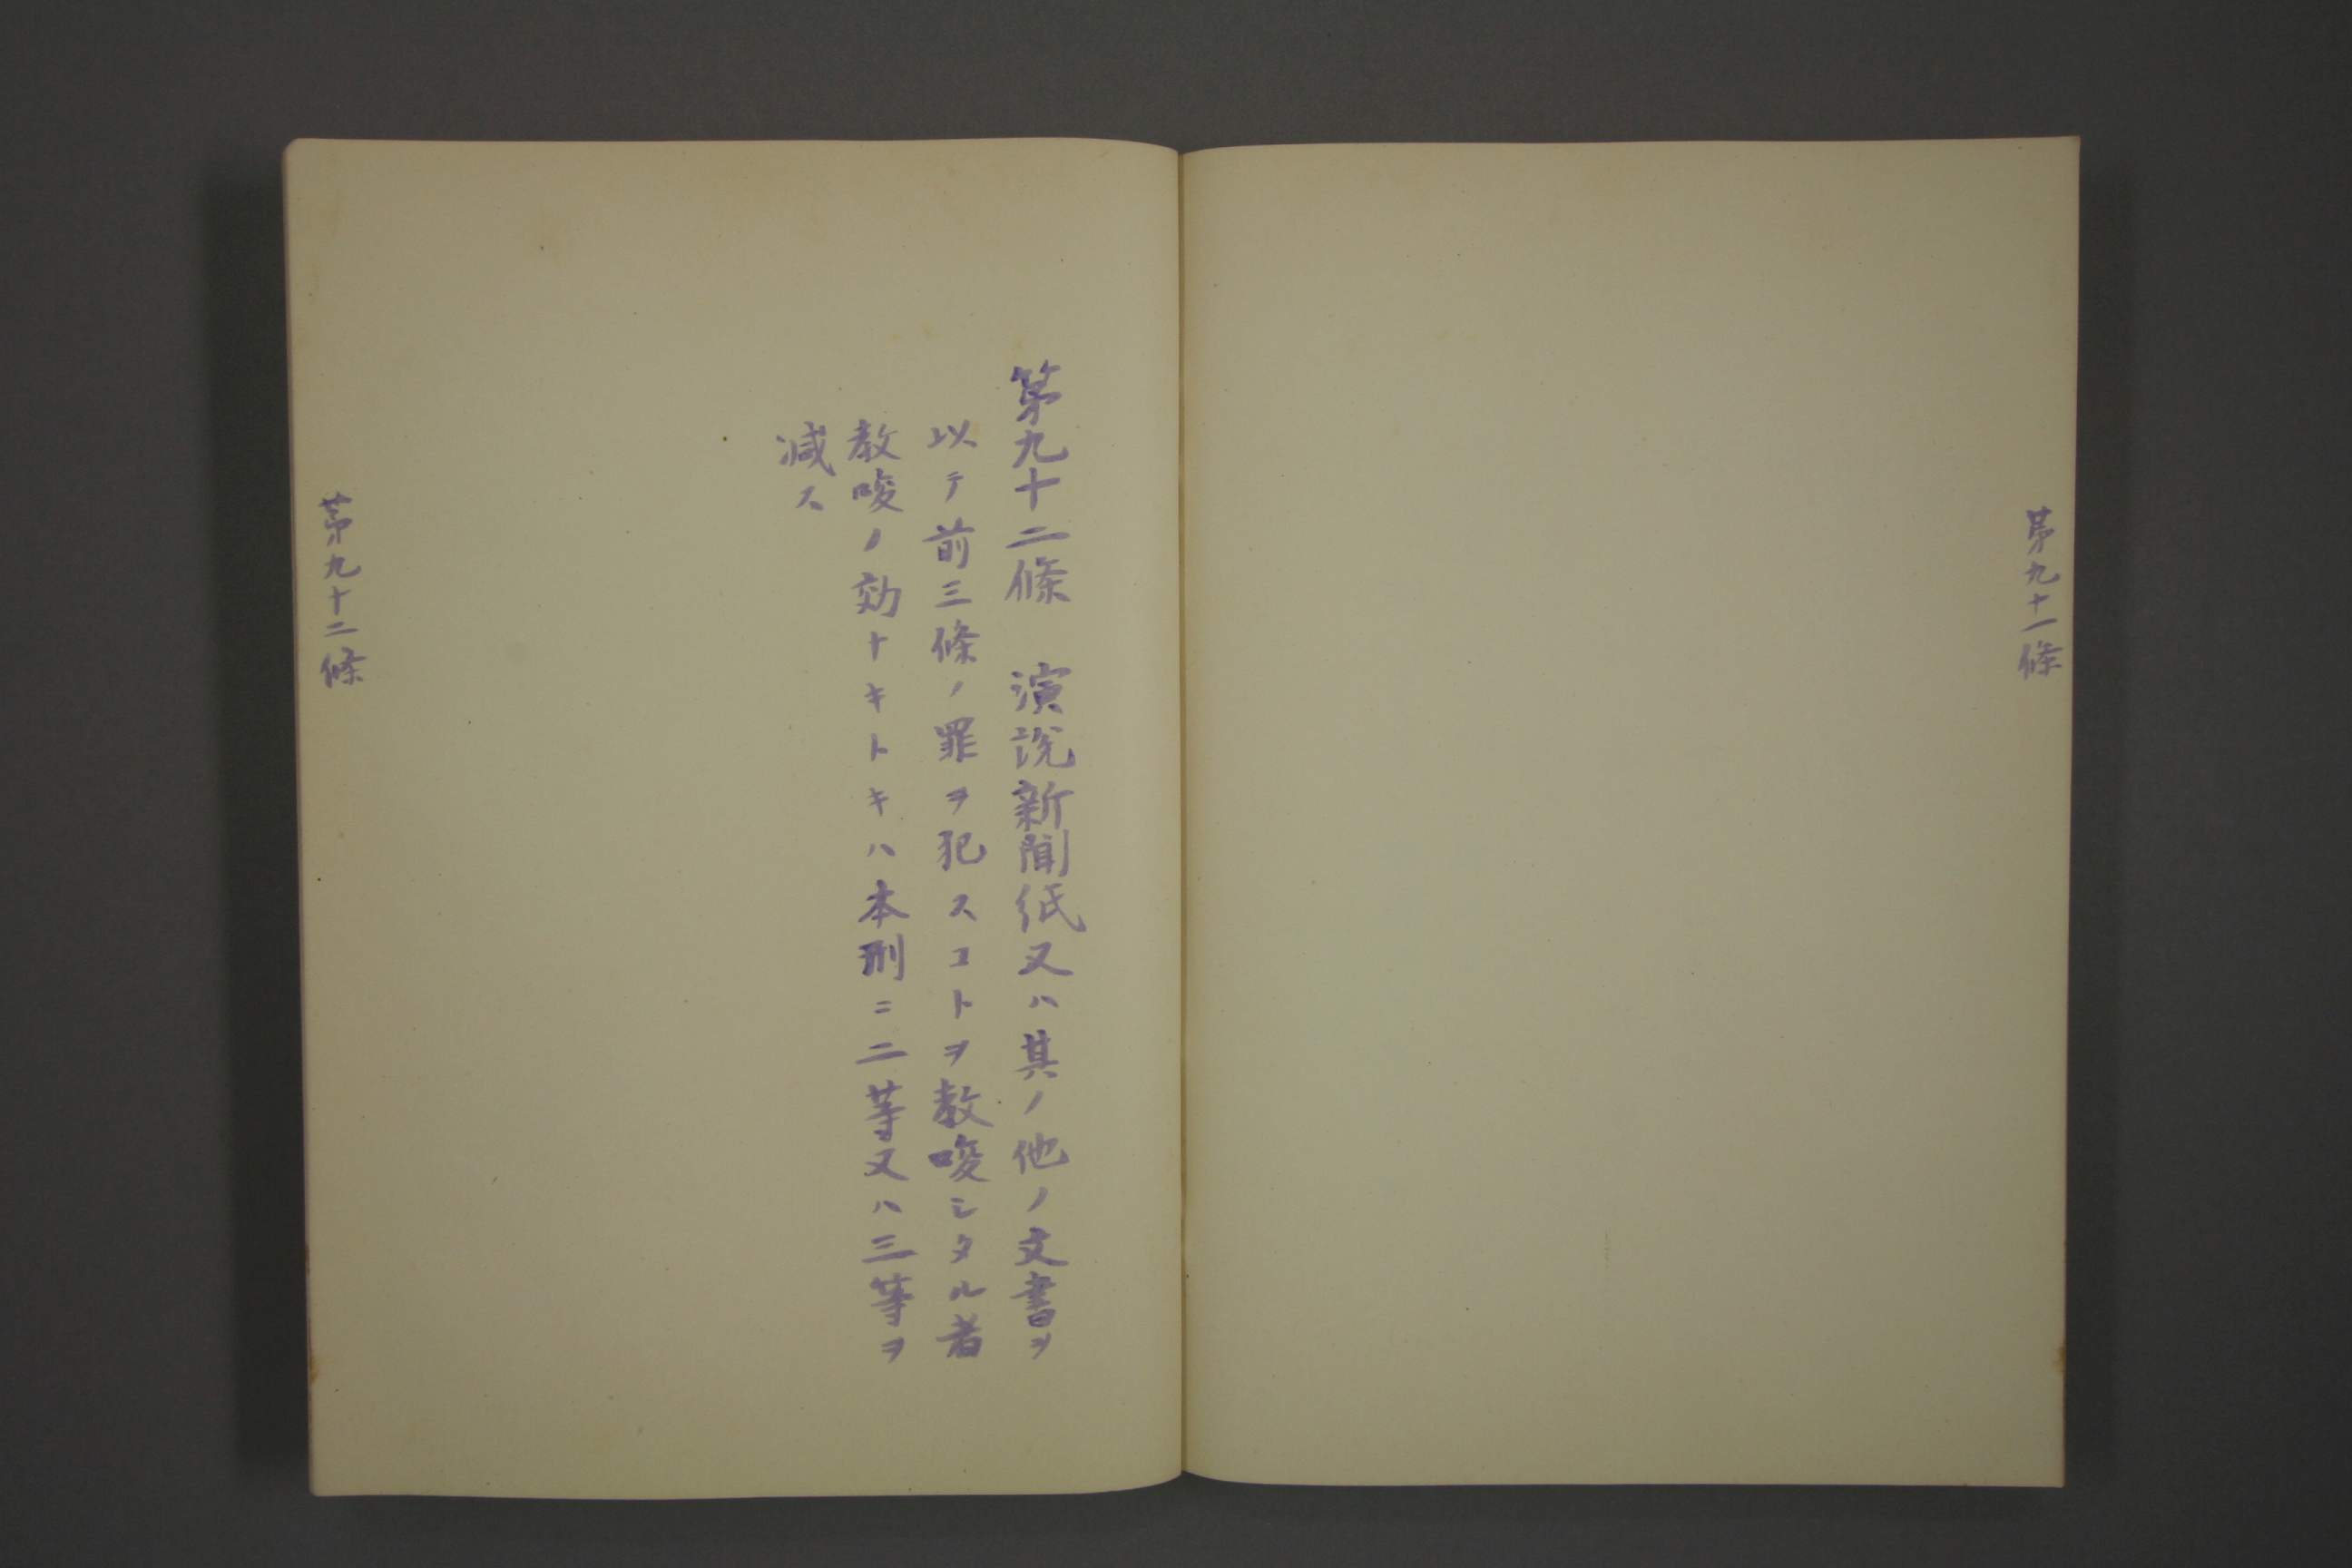 第九十一條
第九十二條　演説新聞紙又ハ其ノ他ノ文書ヲ
以テ前三條ノ罪ヲ犯スコトヲ教唆シタル者
教唆ノ効ナキトキハ本刑ニ二等又ハ三等ヲ
減ス
第九十二條